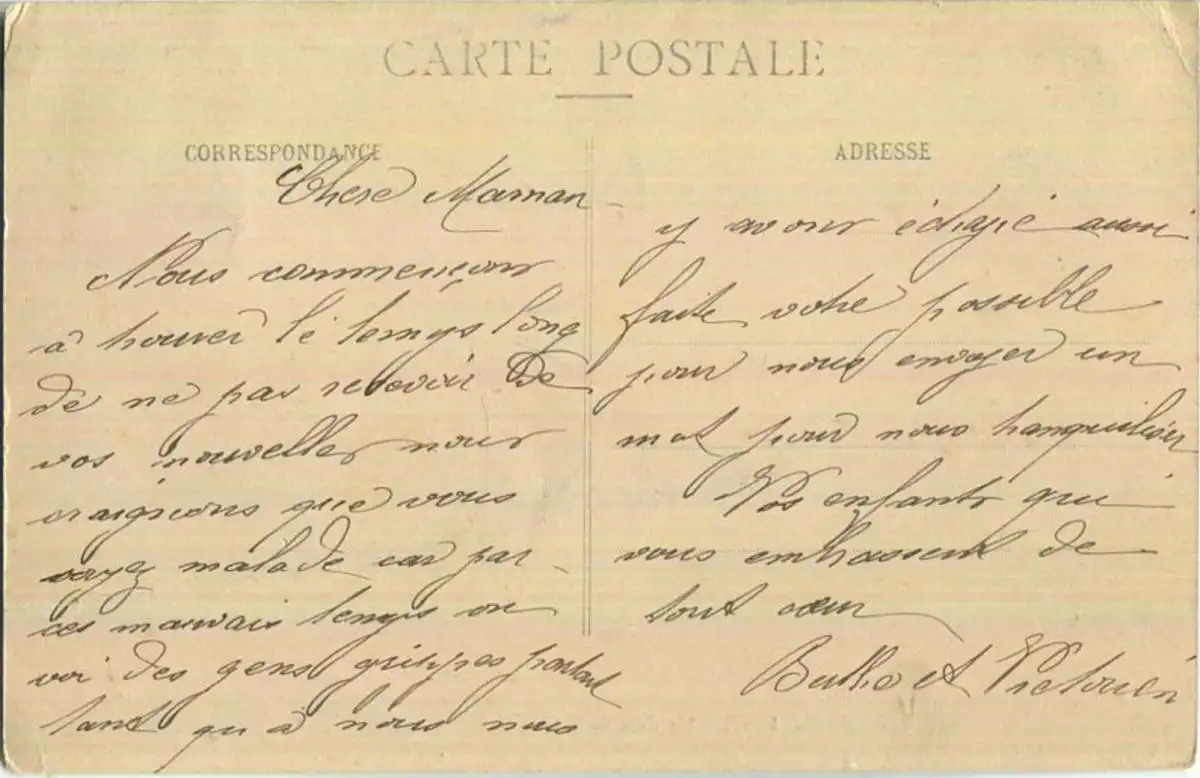 CARTE POSTALE
CORRESPONDANCE
Chere Maman
Nous commençons
à trouver le temps long
de ne pas recevoir de
vos nouvelles nous
craignions que vous
soyez malade car par
ces mauvais temps on
voi des gens grippes partout
tant qu à nous nous
ADRESSE
y avons échapé aussi
faite votre possible
pour nous envoyer un
mot pour nous tranquiliser
Vos enfants qui
vous embrassent de
tout cœur
et Victorin